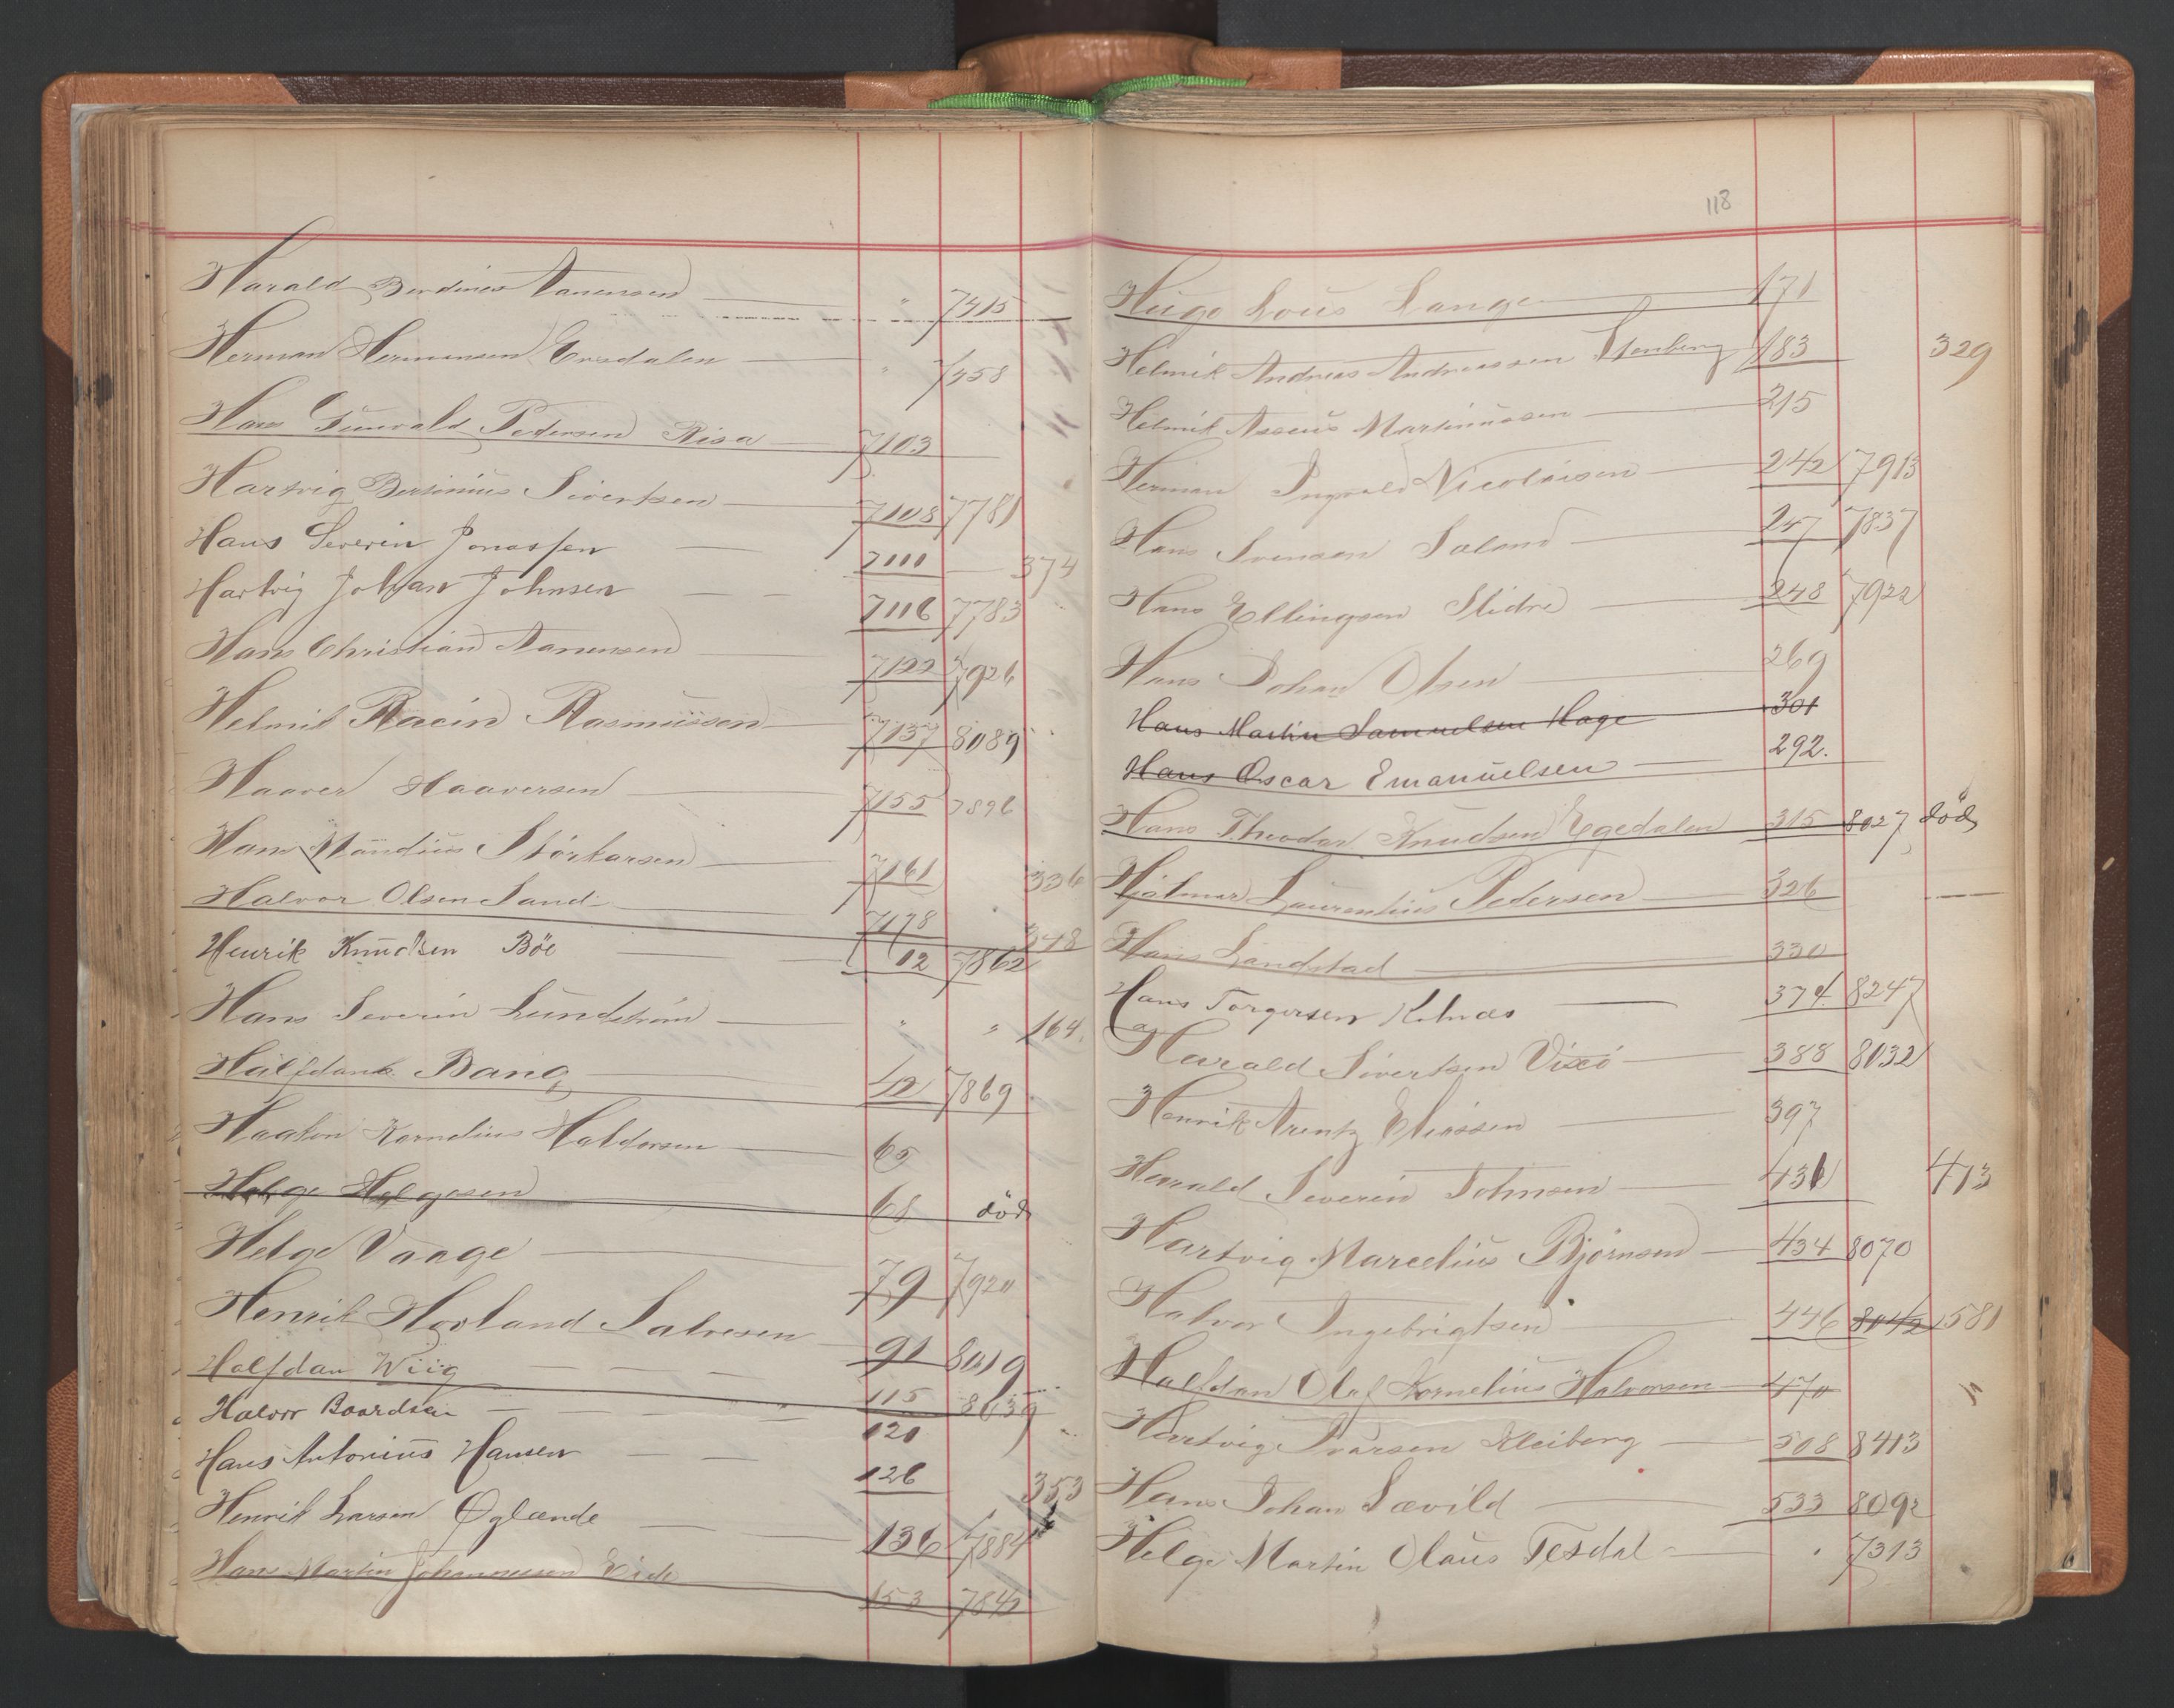 Harald Berdines Aanensen — " 7415
Herman Hermansen Ersdalen — " 7458
Hans Gunvald Pedersen Risa — 7103
Hartvig Bertinius Sivertsen — 7108 7781
Hans Severin Jonassen — 7111 — 374
Hartvig Johan Johnsen — — 7116 7783
Hans Christian Aanensen — 7122 7926
Helmik Racin Rasmussen — 7137 8089
Haaver Haaversen — 7155 7896
Hans Mandius Storkarsen — 7161 336
Halvor Olsen Sand — 7178 348
Henrik Knudsen Böe — 12 7862
Hans Severin Lundström — " " 164
Halfdan Bang — 42 7869
Haakon Kornelius Haldorsen — 65
Helge Helgesen — 68 död
Helge Vaage — 79 7920
Henrik Hovland Salvesen 91 8019
Halfdan Wiig — — — 115 8039
Halvor Baardsen — — " 121
Hans Antonius Hansen — — 126 353
Henrik Larsen Oglænde — — 136 7884
Hans Martin Johannessen Eide 153 7842
118
Hugo Lous Lange — 171
Helmik Andreas Andreassen Stenberg 183 329
Helmik Martinussen — 215
Herman Ingvald Nicolaisen — 242 7913
Hans Svensen Saland — 247 7837
Hans Ellingsen Slidre — 248 7922
Hans Johan Olsen — 269
Hans Martin Samuelsen Hage 301
Hans Oscar Emanuelsen — 292.
Hans Theodor Knudsen Egedalen 315 8027 död
Hjalmar Laurentius Pedersen — 326
Hans Landstad — 330
Hans Torgersen — 374 8247
Harald Sivertsen — 388 8032
Henrik Arentz Eliassen — 397
Harald Severin Johnsen — 431 413
Hartvig Marcelius Björnsen — 434 8070
Halvor Ingebrigtsen — 446 8042 581
Halfdan Olaf Kornelius Halvorsen — 470
Hartvig Ivarsen Kleiberg — 508 8413
Hans Johan Sævild — 533 8092
Helge Martin Olaus Tesdal — " 7313